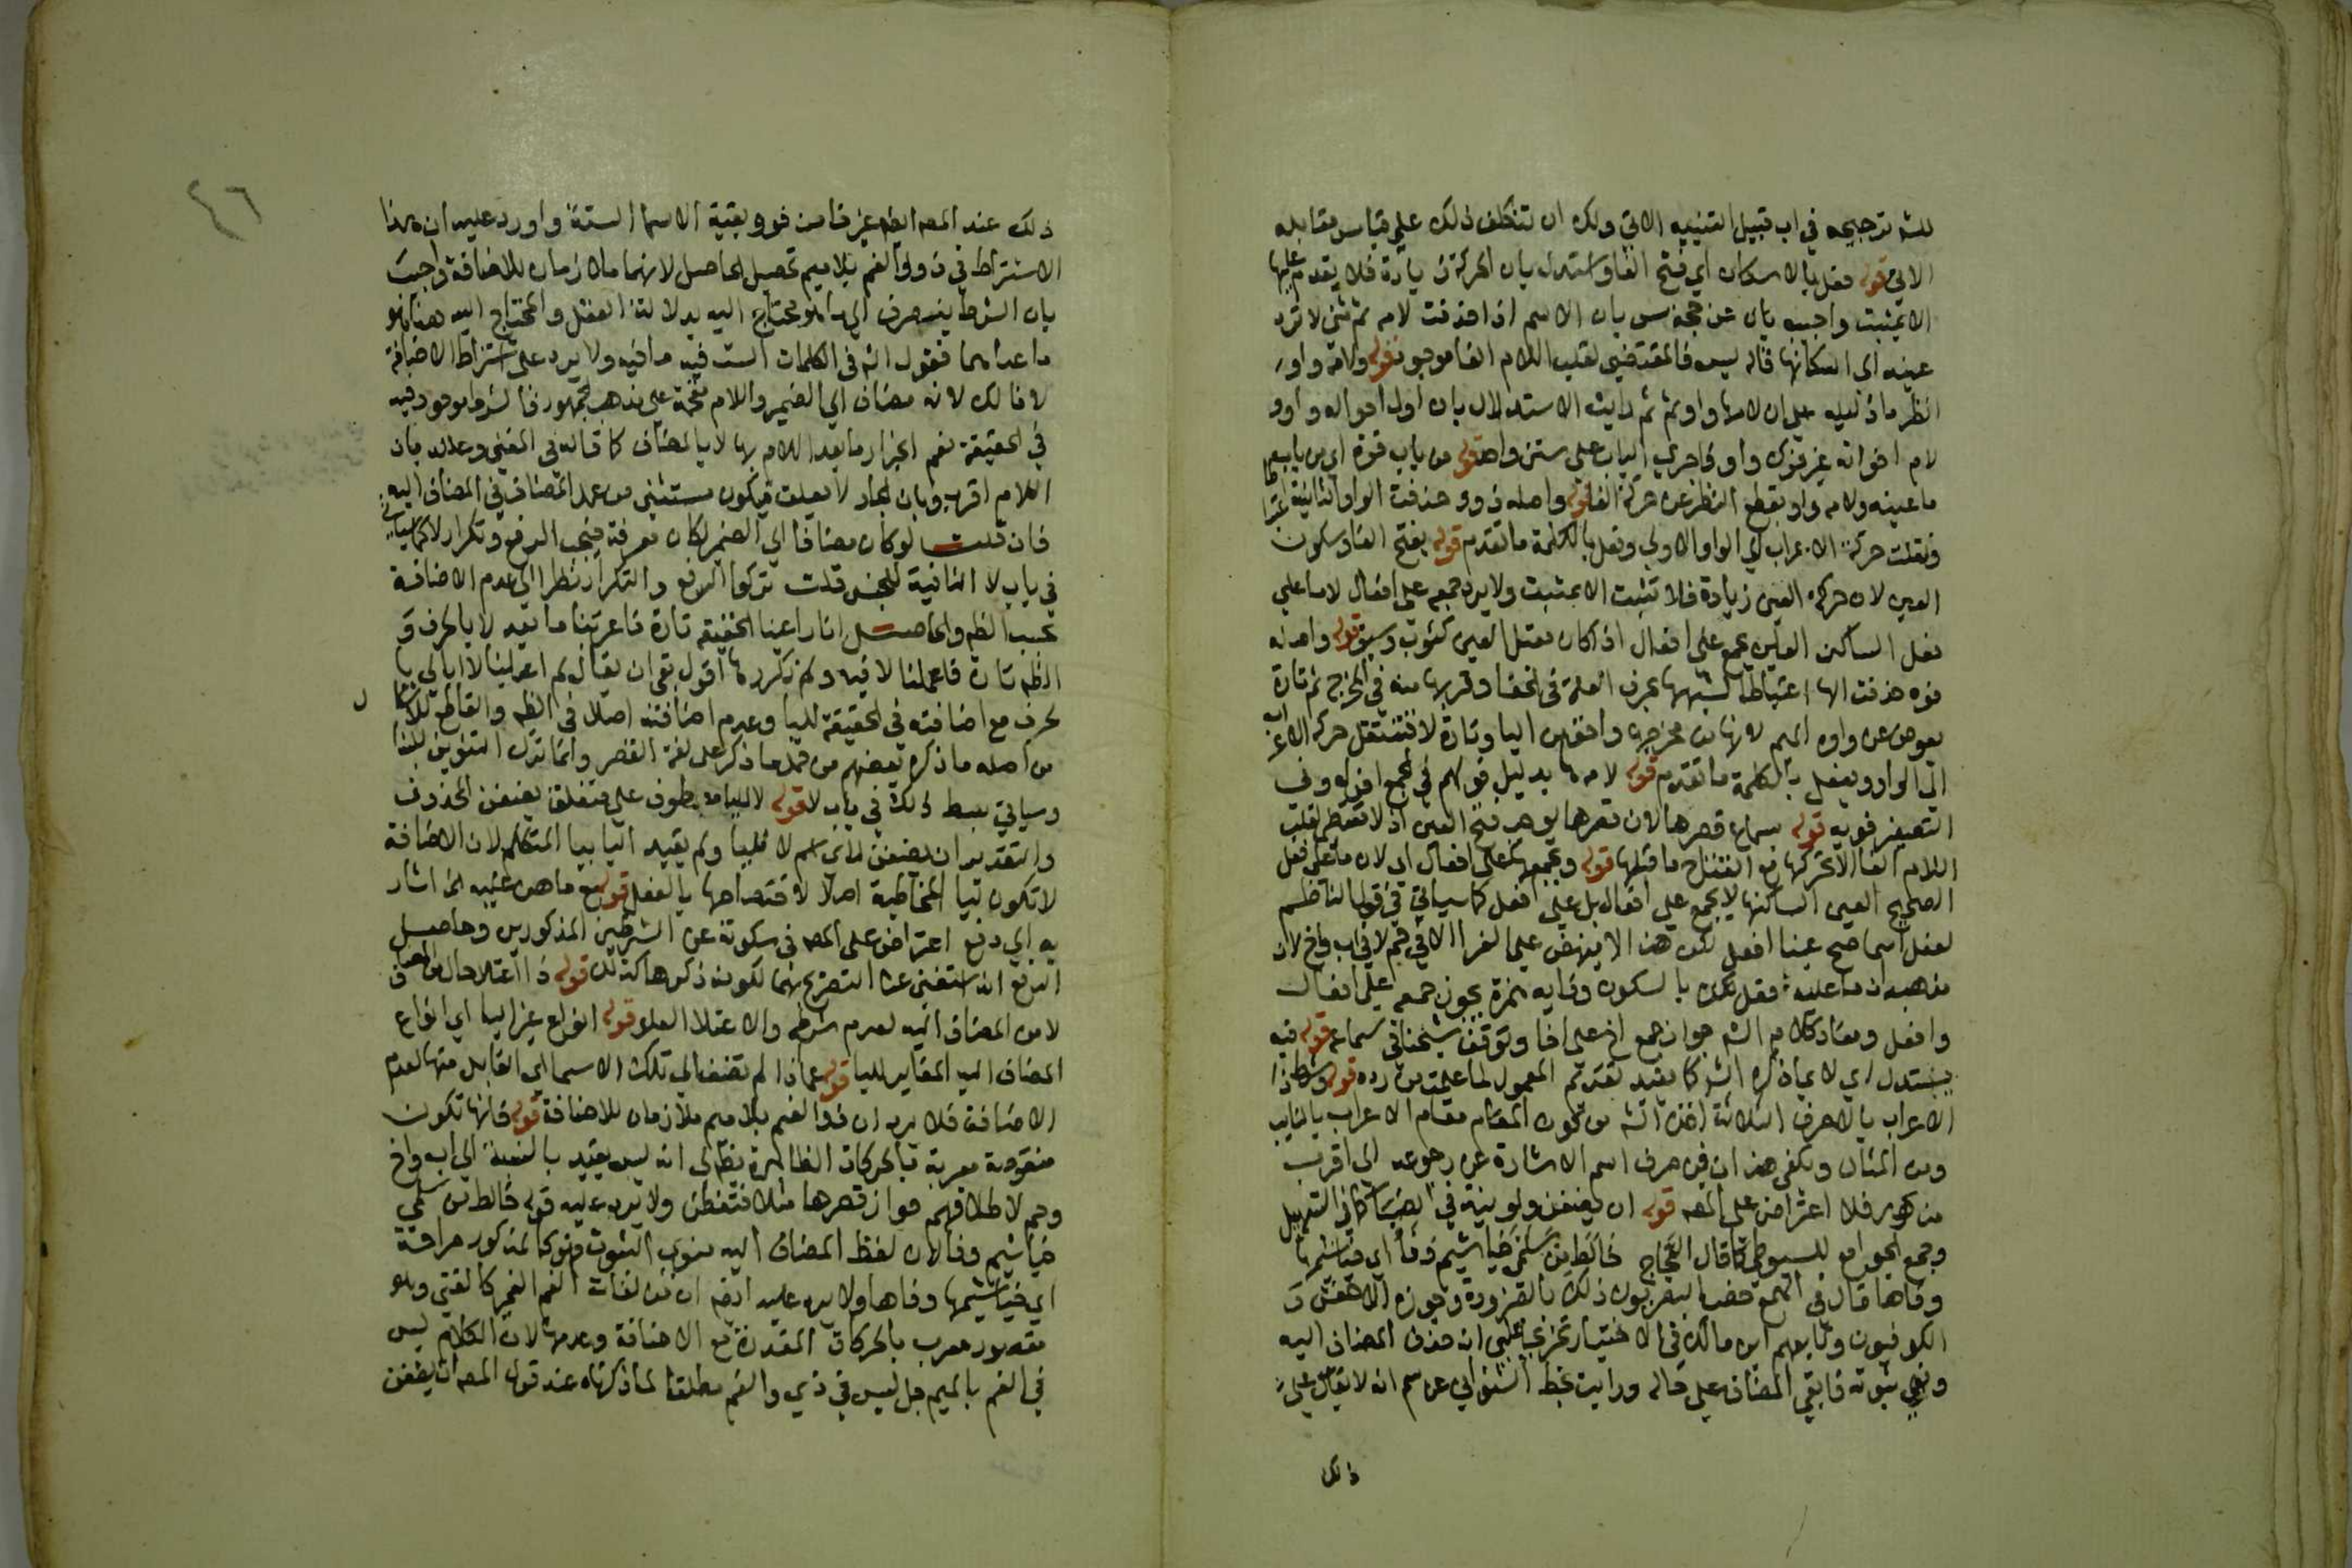 للشـ ترجيحه في اب قبيل التنبيه الاتي ولك ان تتكلف ذلك على قياس مقابله
الاتي قوله فعل بالاسكان اي فتح الفا واستدل بان الحركة زيادة فلا يقدم عليها
الا بثبت واجيب بان عن حجة س بان الاسم اذا حذفت لامه ثم ثني لا ترد
عينه الى اسكانها قاله يس فالمقتضي لقلب اللام الفا موجود قوله ولامه واو
انظر ما دليله على ان لامها واو ثم رايت الاستدلال بان اول احواله واوو
لام اخواته غير فوك واو فاجري الباب على سنن واحد قوله من باب قوة اي من باب
ما عينه ولامه واو بقطع النظر عن حركة الفا قوله واصله ذوو حذفت الواو الثانية
ونقلت حركة الاعراب الى الواو الاولى وفعل بالكلمة ما تقدم قوله بفتح الفا وسكون
العين لان حركة العين زيادة فلا تثبت الا بمثبت ولا يرد جمعه على افعال لان ما على
فعل الساكن العين يجمع على افعال اذا كان معتل العين كثوب وسيف قوله واصله
فوه حذفت الها اعتباطا لشبهها بحرف العلة في الخفا وقربها منه في المخرج ثم تارة
يعوض عن واوه الميم لانها من مخرجه واخف من اليا وتارة لا فتنتقل حركة الاعراب
الى الواو ويفعل بالكلمة ما تقدم قوله لامه ها بدليل قولهم في الجمع افواه وفي
التصغير فويه قوله سماع قصرها لان قصرها يوجب فتح العين اذ لا مقتضي لقلب
اللام الفا الا تحركها مع انفتاح ما قبلها قوله وبجمعها على افعال اي لان ما على فعل
الصحيح العين الساكنها لا يجمع على افعال بل على افعل كما سياتي في قول الناظم
لفعل اسما صح عينا افعل لكن هذا لا ينهض على الفرا الا في حم لا في اب واخ لان
مذهبه ان ما عليه فعل بالسكون وفايه همزة يجوز جمعه على افعال
وافعل ومفاد كلام الشـ جواز جمع اخ على اخا وتوقف شيخنا في سماعه قوله فيه
يستدل اي لا بما ذكره الشـ كما يفيد تقديم المعمول لما علمت من رده قوله وشرط ذا
الاعراب بالاحرف الثلاثة اخذه الشـ من كون المقام مقام الاعراب بالنايب
ومن المثال ويكفي هذا في صرف اسم الاشارة عن رجوعه الى اقرب
مذكور فلا اعتراض على المصـ قوله ان يضفن ولو بنية في كما في التسهيل
وجمع الجوامع للسيوطي كما قال العجاج خالط من سلمى خياشيم وفا اي خياشيمها
وفاها قال في الهمع خصه البصريون ذلك بالضرورة وجوزه الاخفش و
الكوفيون وتابعهم ابن مالك في الاختيار تخريجا على انه حذف المضاف اليه
ونوي ثبوته فابقى المضاف على حاله ورايت بخط الشنواني عن سم انه لا يقال على
ذلك
٤٦
ذلك عند المصـ ايضـ غير فا من فو وبقية الاسما الستة واورد عليه ان هذا
الاشتراط في ذو والفم بلا ميم تحصيل الحاصل لانهما ملازمان للاضافة واجيب
بان الشرط ينصرف الى ما هو محتاج اليه بدلالة العقل والمحتاج اليه هنا هو
ما عداهما فنقول انه في الكلمات الست فيه ما فيه ولا يرد على اشتراط الاضافة
لا فا لك لانه مضاف الى الضمير واللام مقحمة على مذهب الجمهور فالشرط موجود فيه
في الحقيقة نعم انجرار ما بعد اللام بها لا بالمضاف كما قاله في المغني وعلله بان
اللام اقرب وبان الجار لا يعلق فيكون مستثنى من عمل المضاف في المضاف اليه
فان قلت لو كان مضافا الى الضمير لكان معرفة فيجب الرفع وتكرار لا كما سياتي
في باب لا النافية للجنس قلت تركوا الرفع والتكرار نظرا الى عدم الاضافة
بحسب الظـ والحاصل انا راعينا الحقيقة تارة فاعربنا ما بعد لا بالحرف و
الظـ تارة فاعملنا لا فيه ولم نكررها اقول بقي ان يقال لم اعملنا لا ابا لي
بحرف مع اضافته في الحقيقة لليا وعدم اضافته اصلا في الظـ والقاطع للاشكال
من اصله ما ذكره بعضهم من حمله ما ذكر على لغة القصر وانما ترك التنوين للبنا
وسياتي بسط ذلك في باب لا قوله لا لليا معطوف على متعلق يضفن المحذوف
والتقدير ان يضفن لاي اسم لا لليا ولم يقيد اليا بيا المتكلم لان الاضافة
لا تكون ليا المخاطبة اصلا لاختصاصها بالفعل قوله مع ما هن عليه الخ اشار
به الى دفع اعتراض على المصـ في سكوته عن الشرطين المذكورين وحاصل
الدفع انه استغنى عن التصريح بهما لكونه ذكرها كذلك قوله ذا اعتلا حال من المضاف
لا من المضاف اليه لعدم شرطه والاعتلا العلو قوله انواع غير اليا اي انواع
المضاف اليه المغاير لليا قوله عما اذا لم تضف اي تلك الاسما اي القابل منها لعدم
الاضافة فلا يرد ان ذو الفم بلا ميم ملازمان للاضافة قوله فانها تكون
منقوصة معربة بالحركات الظاهرة نظر الى انه ليس يقيد بالنسبة الى اب واخ
وحم لاطلاقهم جواز قصرها مثلا فتفطن ولا يرد عليه قوله خالط من سلمى
خياشيم وفا لان لفظ المضاف اليه منوي الثبوت فهو كالمذكور صراحة
اي خياشيمها وفاها ولا يرد عليه ايضـ ان من لغات الفم الفما كالفتى وهو
مقصور معرب بالحركات المقدرة مع الاضافة وعدمها لان الكلام ليس
في الفم بالميم بل ليس في ذي والفم مطلقا لما ذكرناه عند قول المصـ ان يضفن